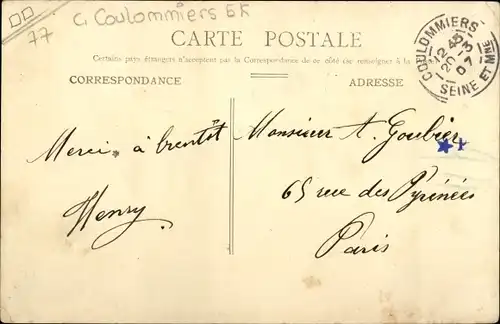 C Coulommiers EK
77
CARTE POSTALE
Certains pays étrangers n'acceptent pas la Correspondance de ce côté (se renseigner à la
CORRESPONDANCE
ADRESSE
COULOMMIERS
12 45
20-3
07
SEINE ET MNE
Merci, à bientôt
Henry
Monsieur A. Goubier
65 rue des Pyrénées
Paris